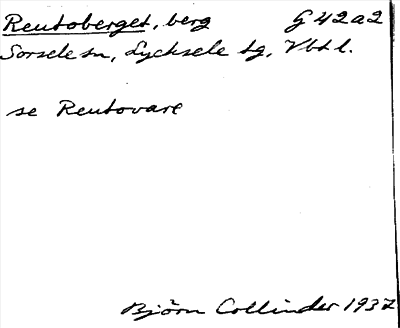 Reutoberget, berg G 42 a 2
Sorsele sn, Lycksele tg, Vbtl.
se Reutovare
Björn Collinder 1937